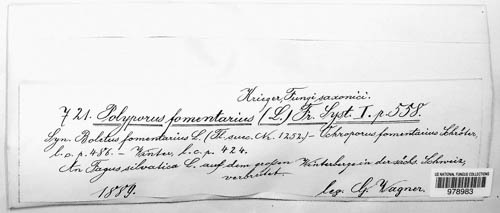 Krieger, Fungi saxonici.
721. Polyporus fomentarius (L.) Fr. Syst. I. p. 558.
Syn. Boletus fomentarius L. (Fl. suec. Nr. 1252.) - Ochroporus fomentarius Schröter,
l. c. p. 486. - Winter, l. c. p. 424.
An Fagus silvatica L. auf dem großen Winterberge in der sächs. Schweiz,
verbreitet.
1889. leg. G. Wagner.
US NATIONAL FUNGUS COLLECTIONS
978983